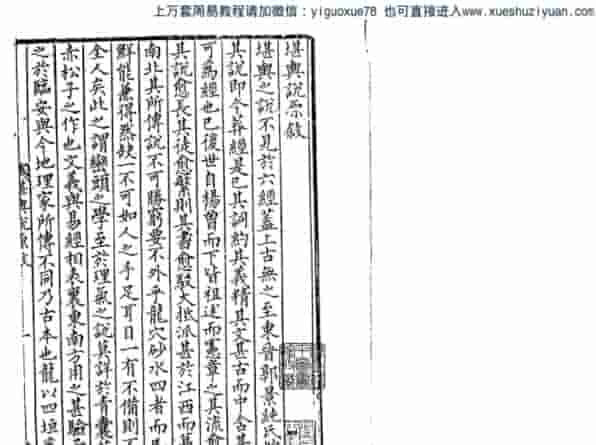 上万套周易教程请加微信：yiguoxue78 也可直接进入www.xueshuziyuan.com
堪輿説原敘
堪輿之説不見於六經蓋上古無之至東晉郭景純氏
其説即今葬經是已其詞約其義精其文甚古而中含甚
可為經也已後世自楊曾而下皆祖述而憲章之其流愈
其説愈長其徒愈繁則其書愈駁大抵派甚於江西而甚
南北其所傳説不可勝窮要不外乎龍穴砂水四者而
鮮能兼得然缺一不可如人之手足耳目一有不備則
全人矣此之謂巒頭之學至於理氣之説莫詳於青囊
赤松子之作也文義與易經相表裏東南方用之甚驗
之於臨安與今地理家所傳不同乃古本也龍以四垣
堪輿説原敘